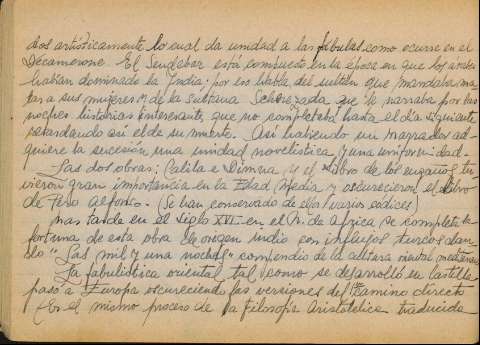 dos artísticamente lo cual da unidad a las fábulas como ocurre en el
Decamerone. El Sendebar está compuesto en la época en que los
habían dominado la India; por eso habla del sultán que mandaba ma-
tar a sus mujeres y de la Sultana Scherezada que le narraba por las
noches historias interesantes que no completaba hasta el día siguiente
retardando así el de su muerte. Así habiendo un narrador ad-
quiere la sucesión una unidad novelística, y una uniformidad.
Las dos obras: Calila e Dimna y el libro de los engaños tu-
vieron gran importancia en la Edad Media y oscurecieron el libro
de Pero Alfonso. (Se han conservado de ellos varios códices)
Mas tarde en el siglo XVI en el N. de Africa se completa la
fortuna de esta obra de origen indio con influjos turcos dan-
do "Las mil y una noches" compendio de la cultura oriental
La fabulística oriental, tal como se desarrolló en Castilla
pasó a Europa oscureciendo las versiones del camino directo
(En el mismo proceso de la filosofía Aristotélica traducida